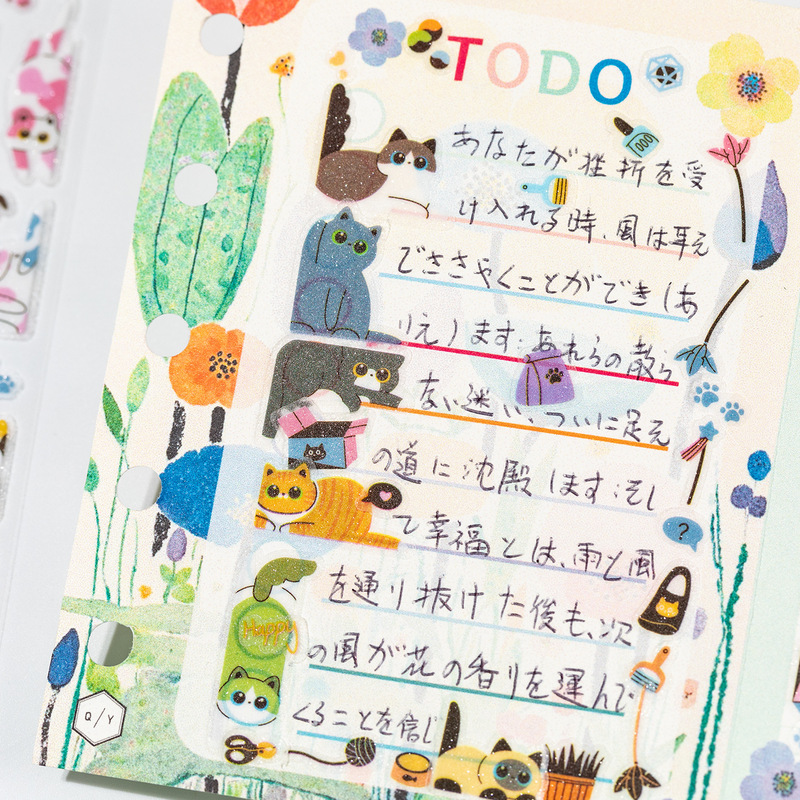 TODO
あなたが挫折を受
け入れる時、風は耳元
でささやくことができ(あ
りえ)ます;あれらの散ら
ない迷い、ついに足元
の道に沈殿します;そし
て幸福とは、雨と風
を通り抜けた後も、次
の風が花の香りを運んで
くることを信じ
?
Happy
Q/Y